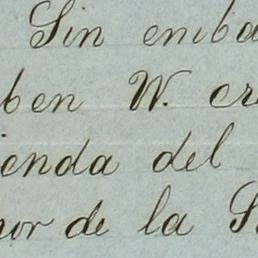 Sin emba
ben W. cr
ienda del
or de la S